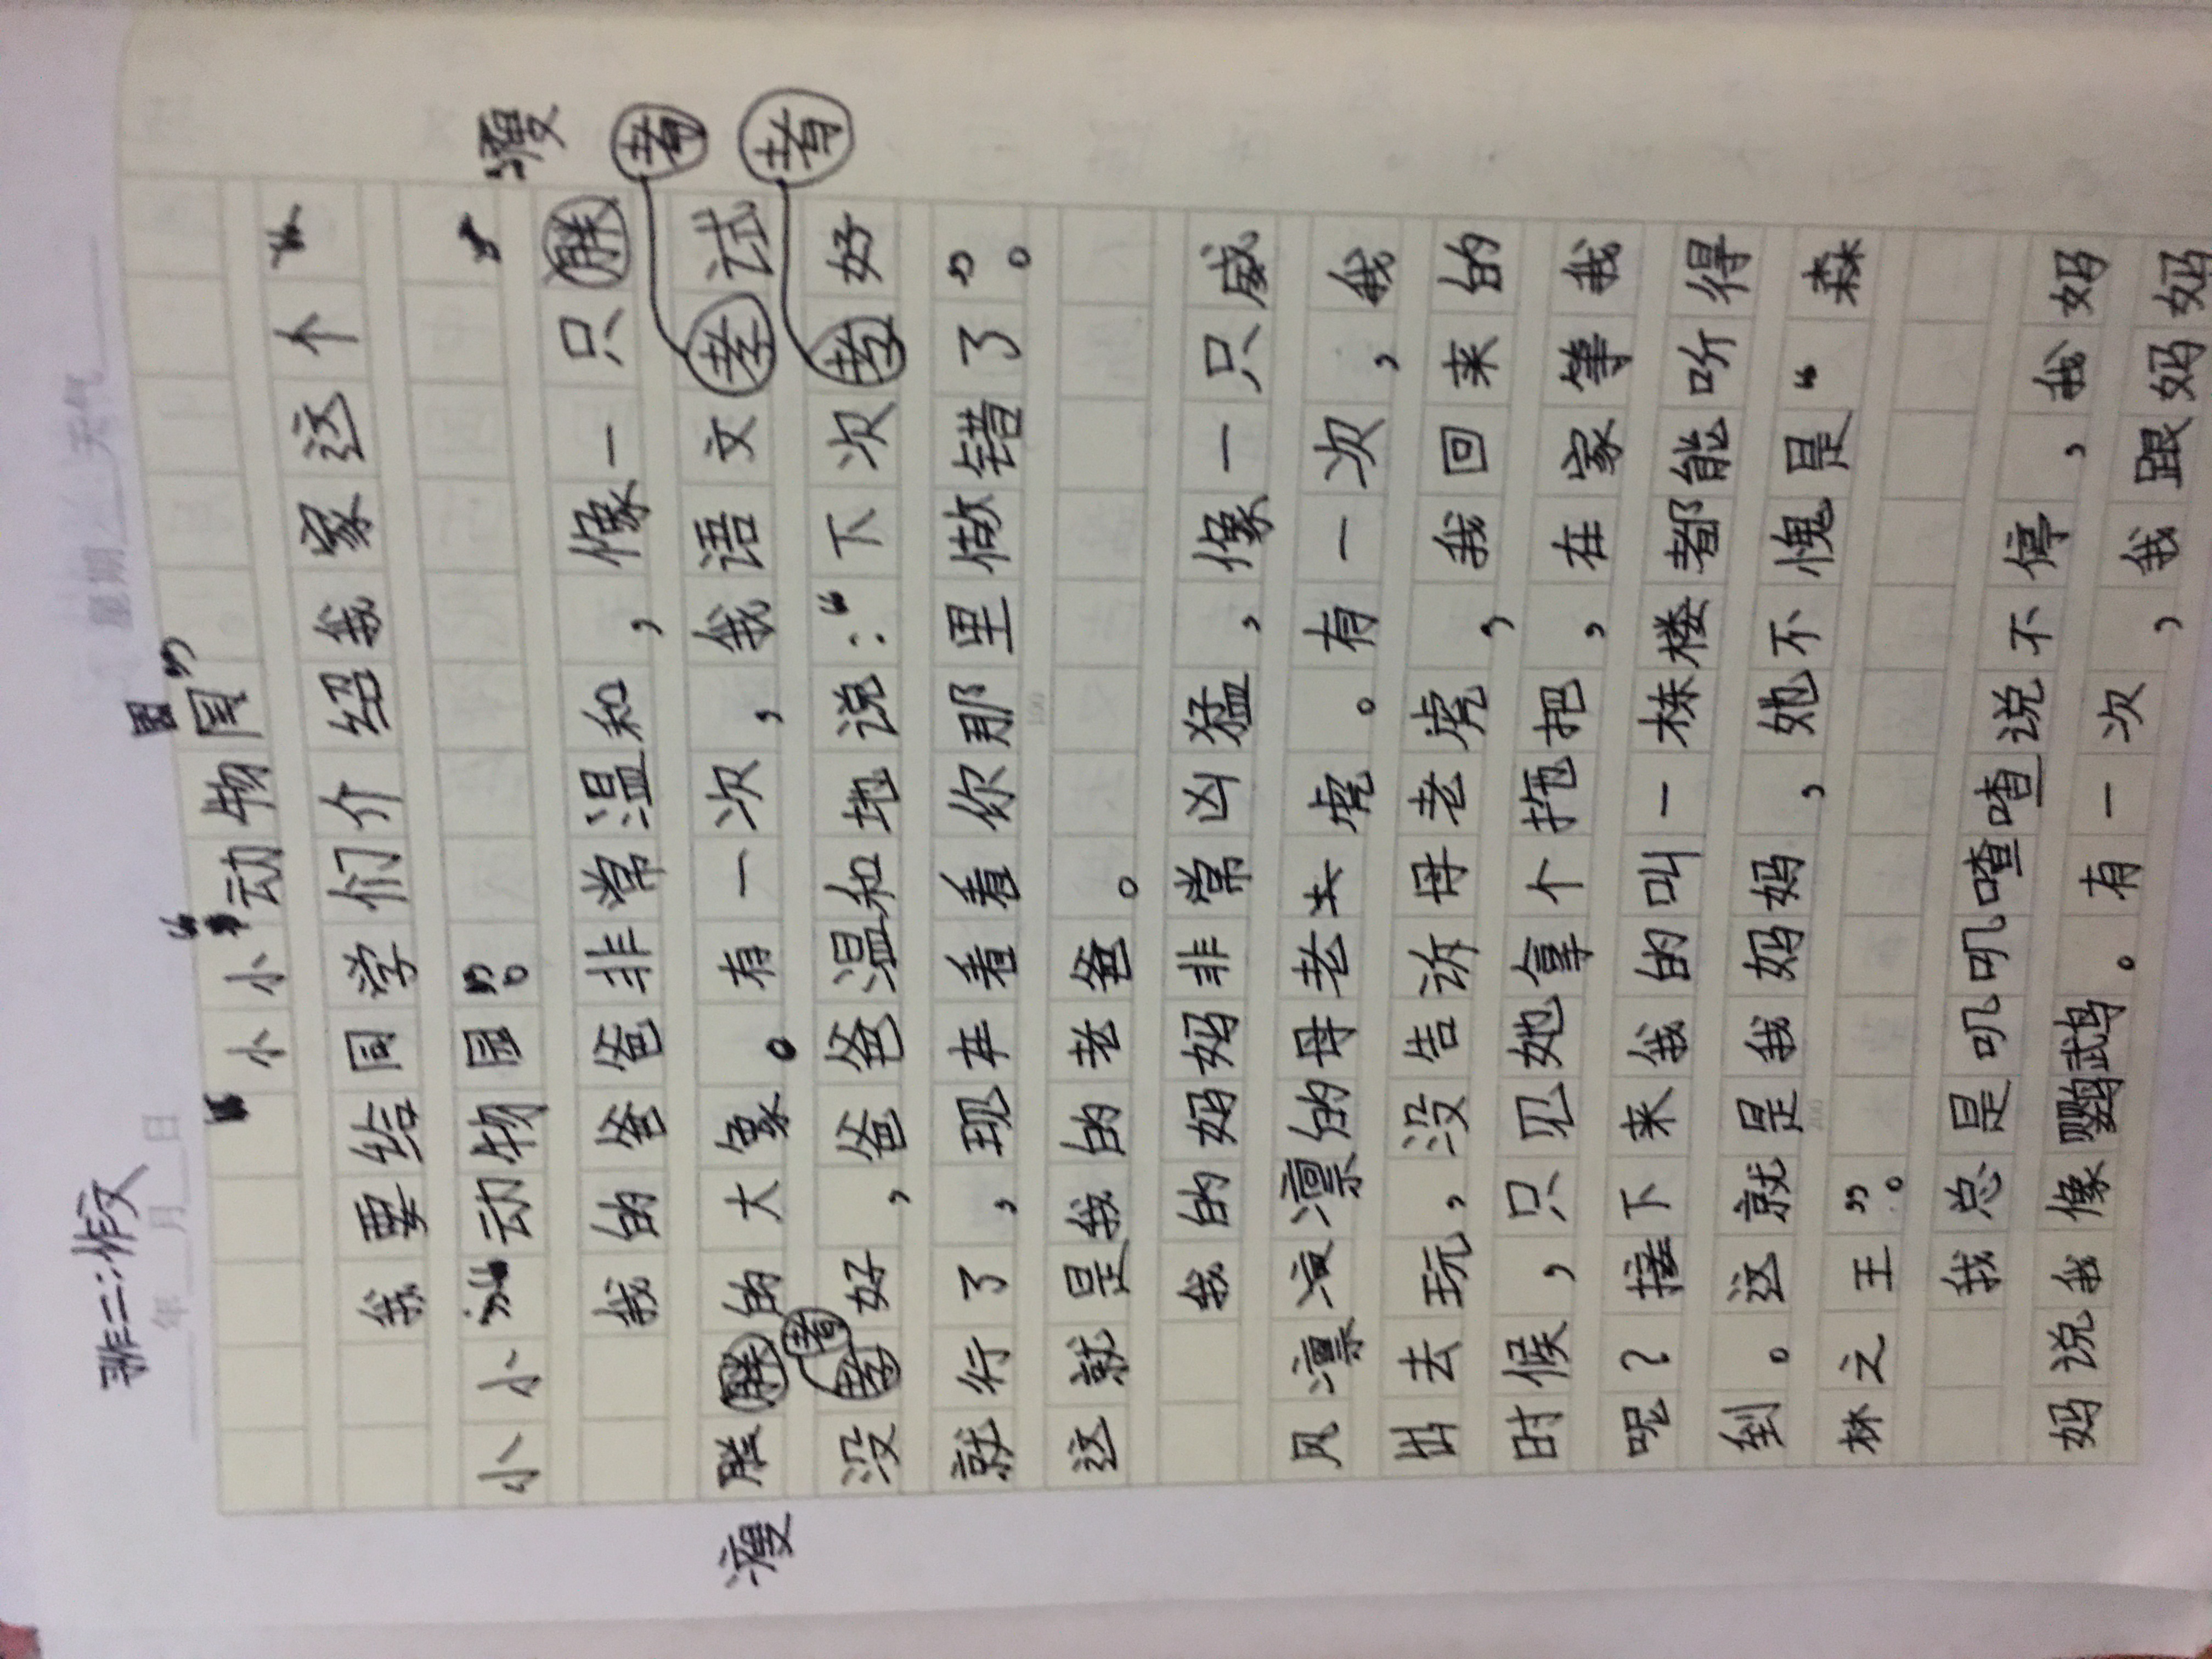 非二:作文
年 月 日 星期 天气
园
小小“动物园”
我要给同学们介绍我家这个“
小小“动物园”。
瘦
我的爸爸非常温和,像一只胖
考
瘦
胖的大象。有一次,我语文考试
考
考
没考好,爸爸温和地说:“下次考好
就行了,现在看看你那里做错了”。
这就是我的老爸。
我的妈妈非常凶猛,像一只威
风凛凛的母老虎。有一次,我
出去玩,没告诉母老虎,我回来的
时候,只见她拿个拖把,在家等我
呢?接下来我的叫一栋楼都能听得
到。这就是我妈妈,她不愧是“森
林之王”。
我总是叽叽喳喳说不停,我妈
妈说我像鹦鹉。有一次,我跟妈妈